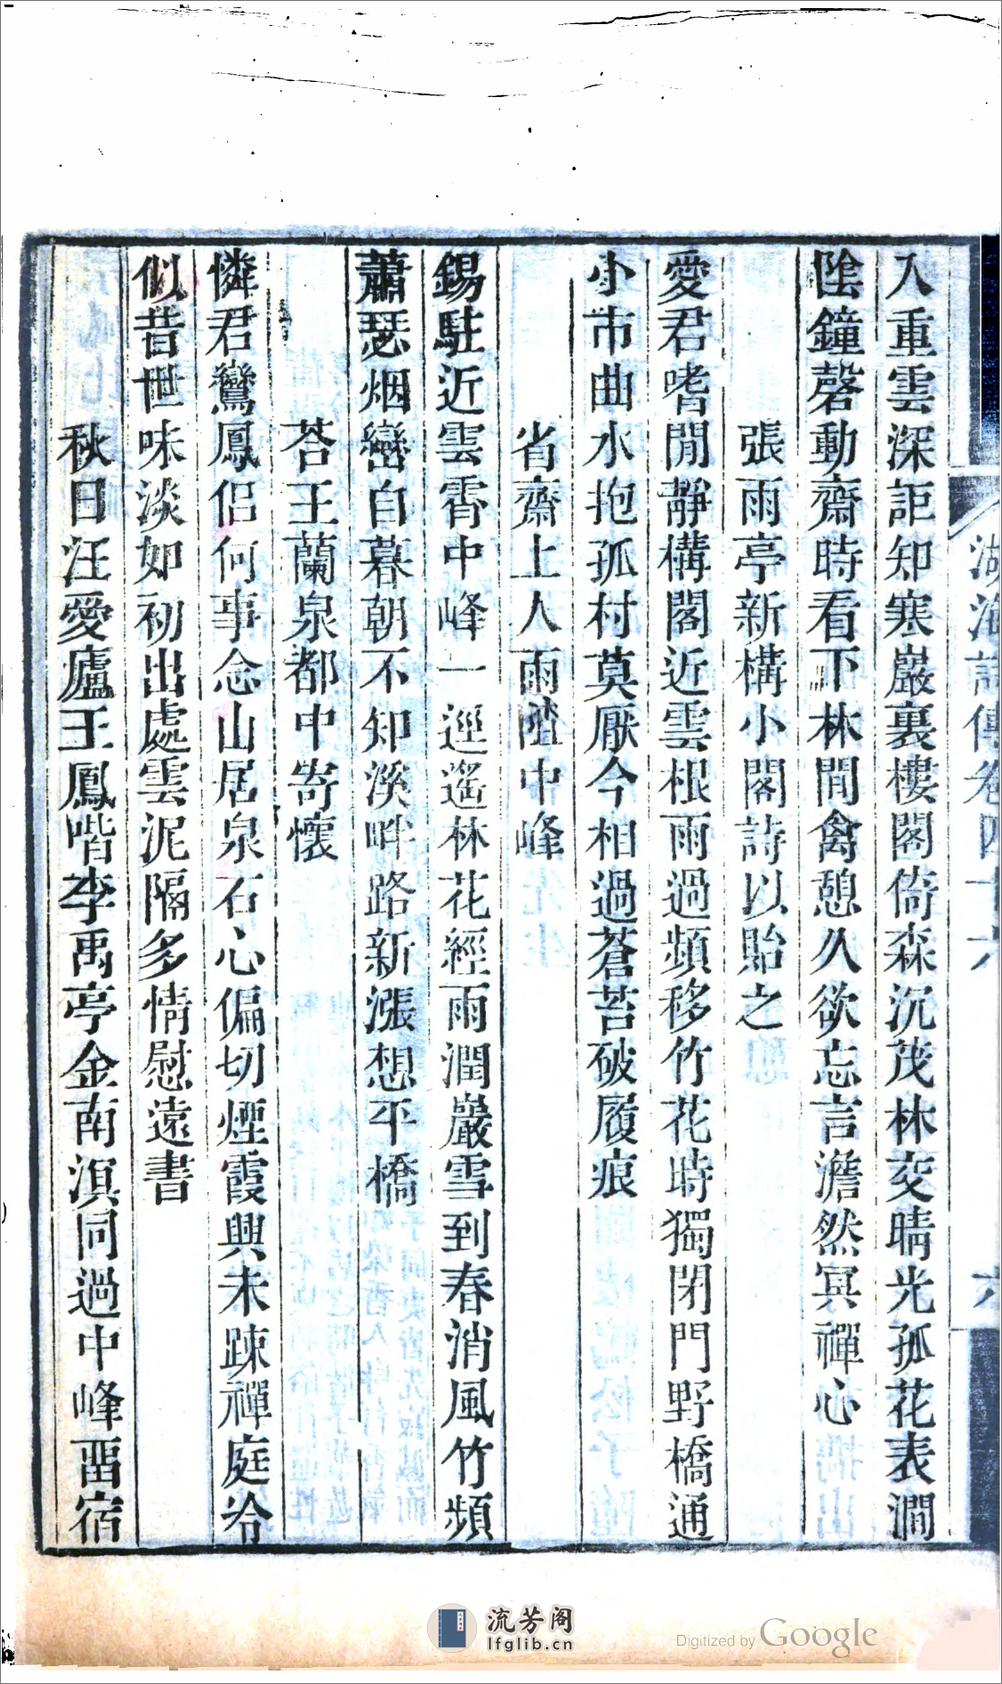 湖海詩傳卷四十六
六
入重雲深詎知寒巖裏樓閣倚森沉茂林交晴光孤花表澗
陰鐘磬動齋時看下林間禽憩久欲忘言澹然冥禪心
張雨亭新構小閣詩以貽之
愛君嗜閒靜構閣近雲根雨過頻移竹花時獨閉門野橋通
小市曲水抱孤村莫厭今相過蒼苔破履痕
省齋上人雨階中峰
錫駐近雲霄中峰一逕遙林花經雨潤巖雪到春消風竹頻
蕭瑟烟巒自暮朝不知溪畔路新漲想平橋
荅王蘭泉都中寄懷
憐君鸞鳳侶何事念山居泉石心偏切煙霞興未疎禪庭冷
似昔世味淡如初出處雲泥隔多情慰遠書
秋日汪愛廬王鳳喈李禹亭金南溟同過中峰畱宿
流芳阁
lfglib.cn
Digitized by Google